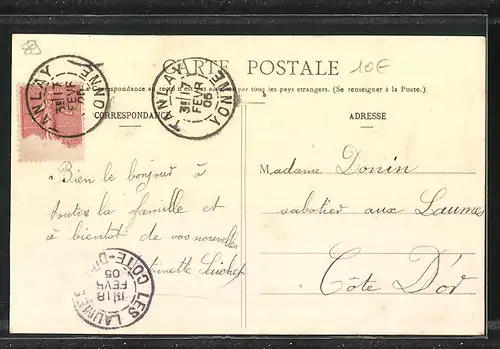 CARTE POSTALE
10E
respondance au recto n'est pas acceptée par tous les pays étrangers. (Se renseigner à la Poste.)
CORRESPONDANCE
ADRESSE
TANLAY
YONNE
17
FEVR
05
TANLAY
YONNE
17
FEVR
05
Bien le bonjour à
toutes la famille et
à bientôt de vos nouvelles
Madame Donin
sabotier aux Laumes
Côte D'or
LES LAUMES
COTE-D'OR
18
FEV
05